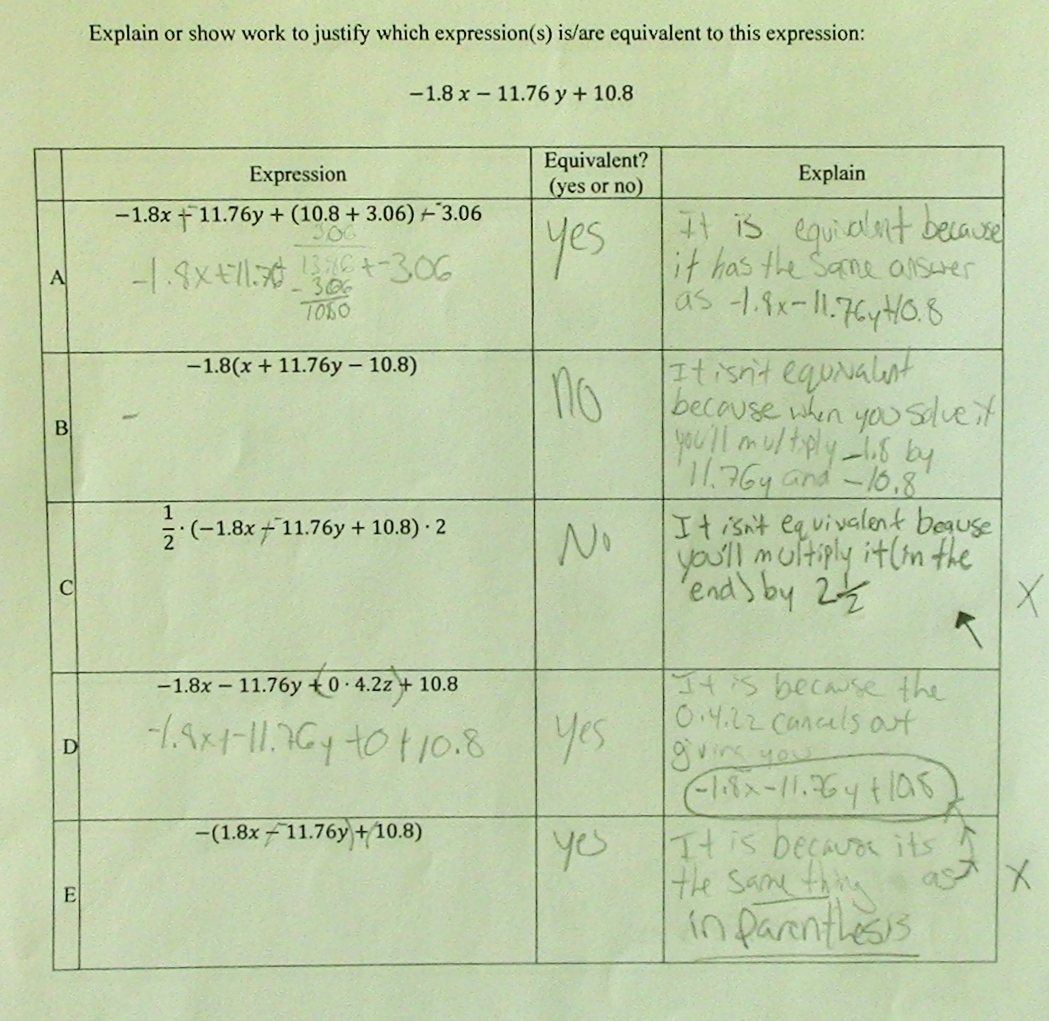 Explain or show work to justify which expression(s) is/are equivalent to this expression:
−1.8 x − 11.76 y + 10.8
Expression
Equivalent?
(yes or no)
Explain
A
−1.8x + ⁻11.76y + (10.8 + 3.06) + ⁻3.06
306
-1.8x+-11.76 13.86 + -306
- 306
1080
yes
It is equivalent because
it has the same answer
as -1.8x-11.76y+10.8
B
−1.8(x + 11.76y − 10.8)
-
no
It isn't equivalent
because when you solve it
you'll multiply -1.8 by
11.76y and -10.8
C
1/2 · (−1.8x + ⁻11.76y + 10.8) · 2
No
It isn't equivalent beause
you'll multiply it (in the
end) by 2 1/2
X
D
−1.8x − 11.76y + (0 · 4.2z) + 10.8
-1.8x+-11.76y +0+10.8
yes
It is because the
0.4.2z cancels out
giving you
-1.8x-11.76y+10.8
E
−(1.8x − ⁻11.76y) + 10.8)
yes
It is because its
the same thing as
in parenthesis
X